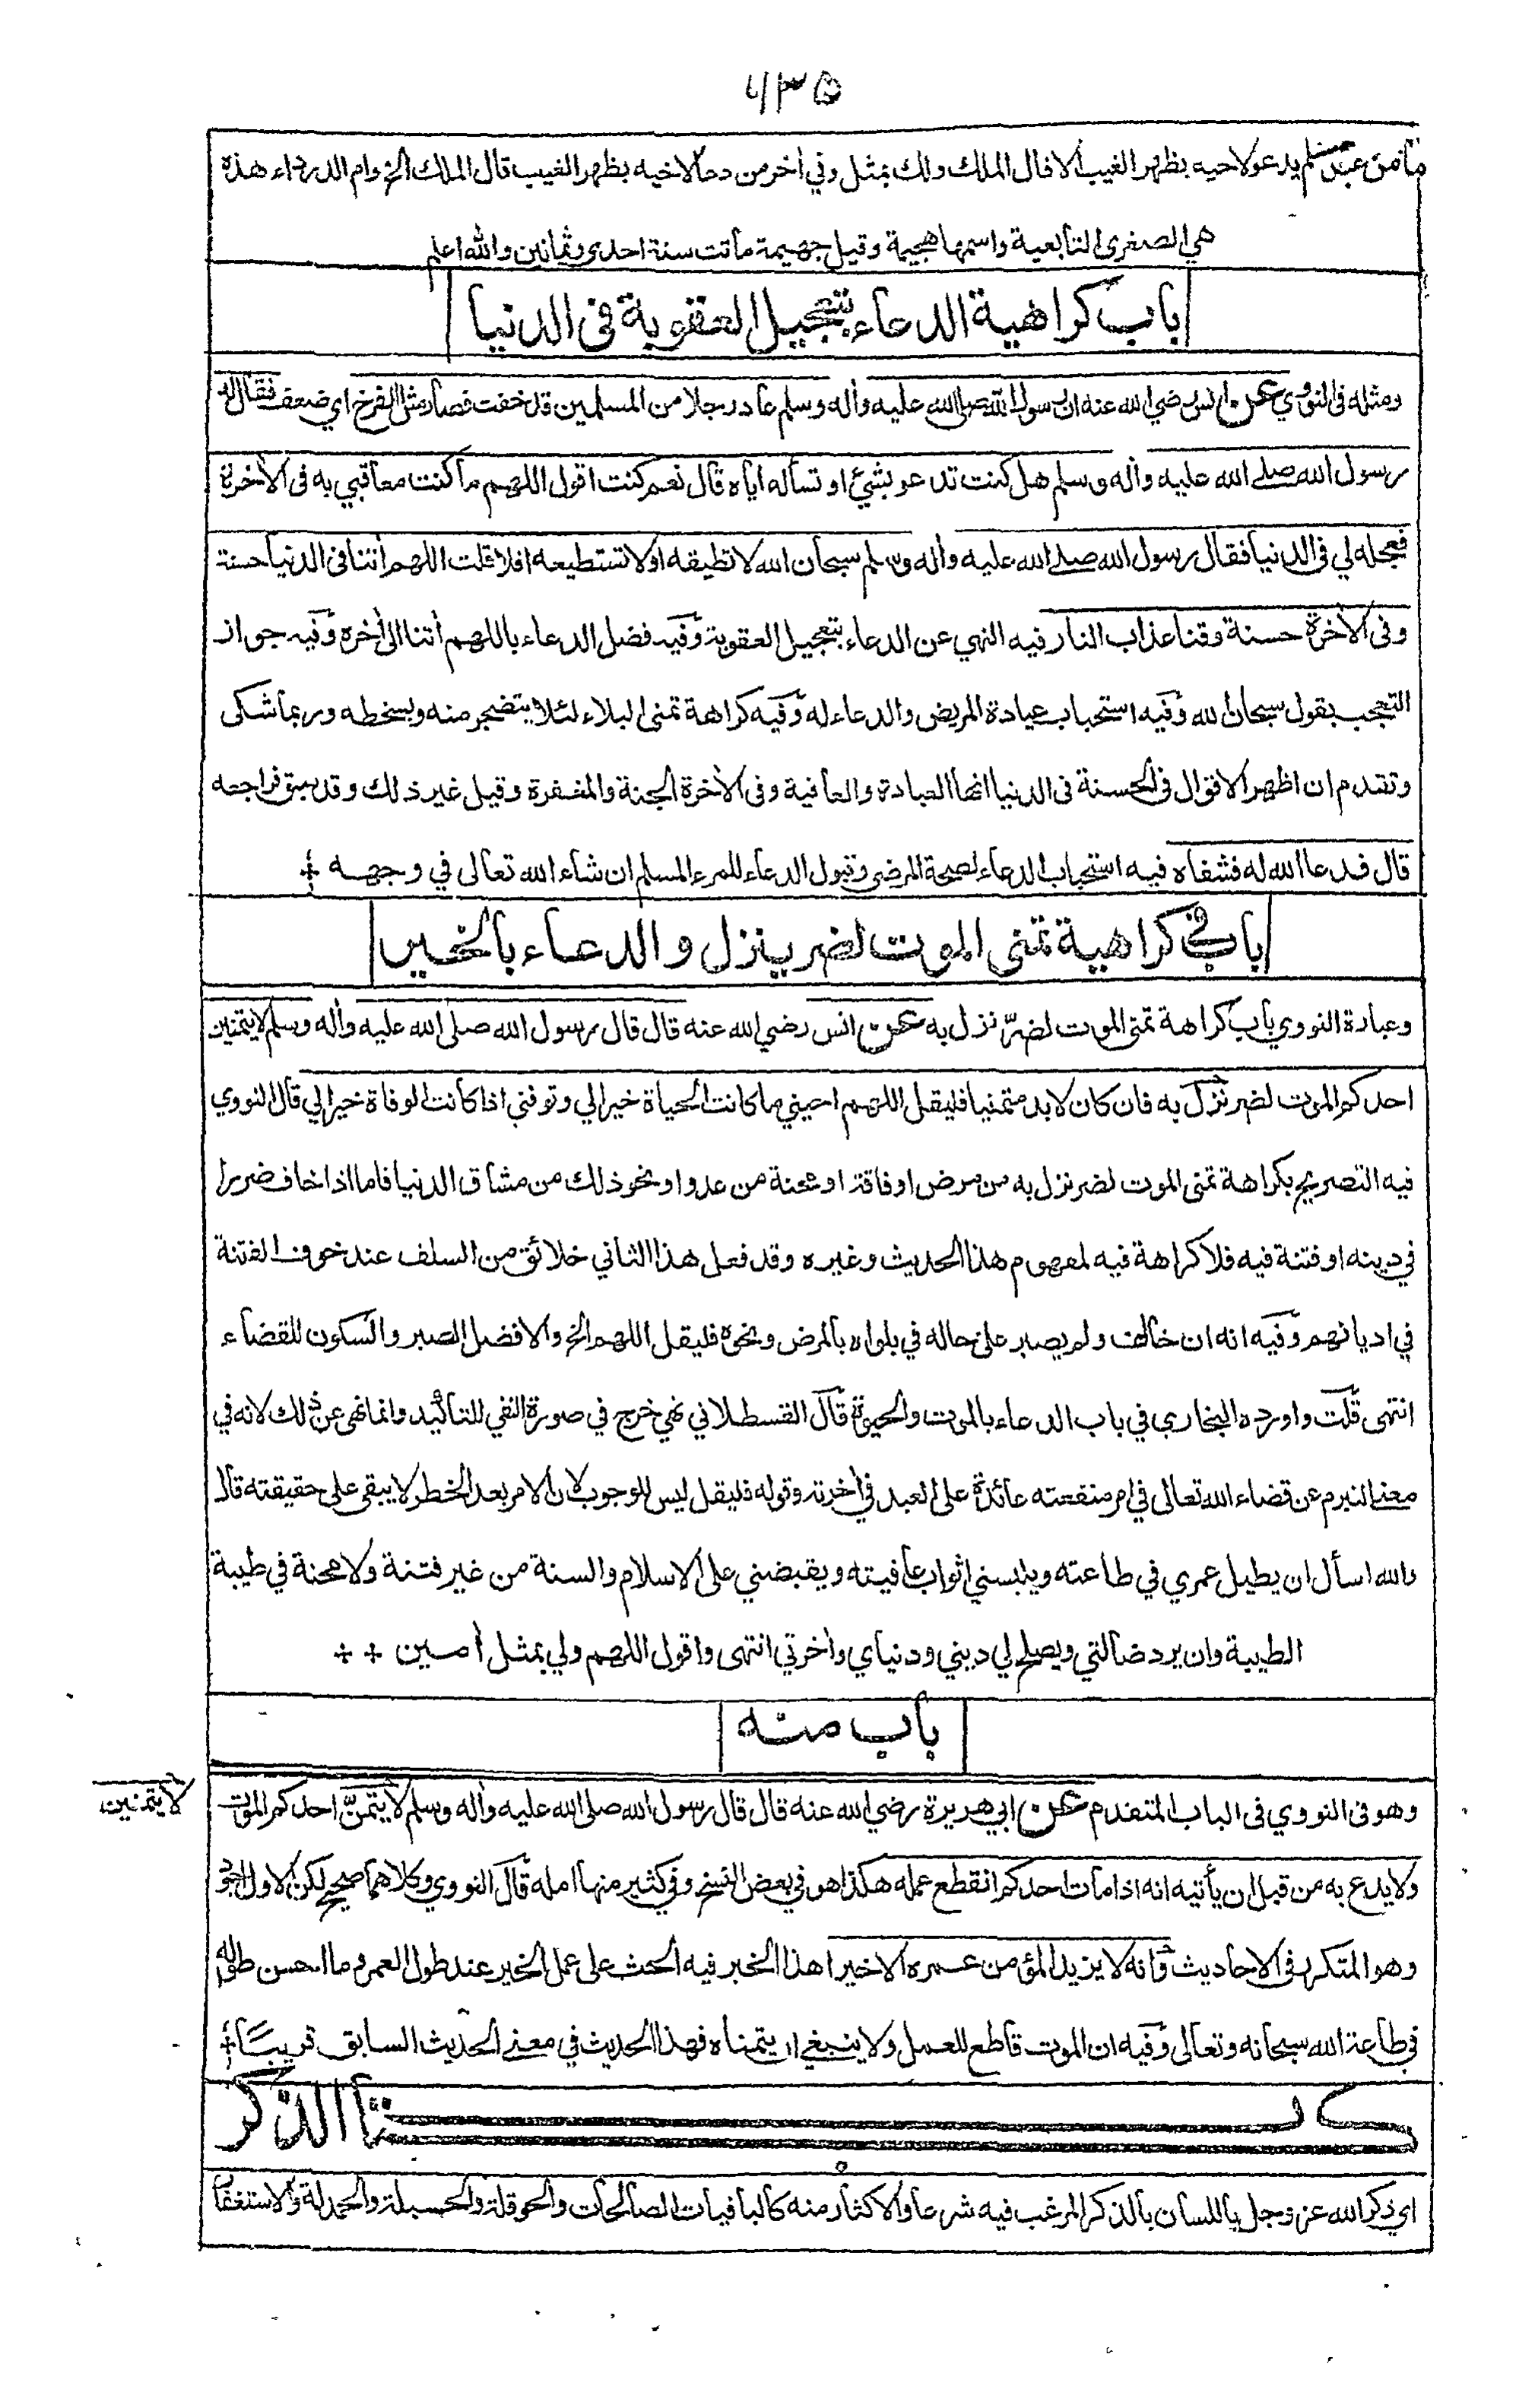 ٦٣٥
ما من عبد مسلم يدعو لاخيه بظهر الغيب الا قال الملك ولك بمثل وفي أخر من دعا لاخيه بظهر الغيب قال الملك الخ وام الدرداء هذه
هي الصغرى التابعية واسمها هجيمة وقيل جهيمة ماتت سنة احدى وثمانين والله اعلم
باب كراهية الدعاء بتعجيل العقوبة فى الدنيا
ومثله فى النووي عن انس رضي الله عنه ان رسول الله صلى الله عليه وأله وسلم عاد رجلا من المسلمين قد خفت فصار مثل الفرخ اي ضعف فقال له
رسول الله صلے الله عليه وأله وسلم هل كنت تدعو بشئ او تسأله اياه قال نعم كنت اقول اللهم ما كنت معاقبي به فى الأخرة
فعجله لي فى الدنيا فقال رسول الله صلے الله عليه وأله وسلم سبحان الله لا تطيقه اولا تستطيعه افلا قلت اللهم أتنا فى الدنيا حسنة
وفى الأخرة حسنة وقنا عذاب النار فيه النهي عن الدعاء بتعجيل العقوبة وفيه فضل الدعاء باللهم أتنا الى أخره وفيه جواز
التعجب بقول سبحان الله وفيه استحباب عيادة المريض والدعاء له وفيه كراهة تمنى البلاء لئلا يتضجر منه ويسخطه وربما شكى
وتقدم ان اظهر الاقوال فى الحسنة فى الدنيا انها العبادة والعافية وفى الأخرة الجنة والمغفرة وقيل غير ذلك وقد سبق فراجعه
قال فدعا الله له فشفاه فيه استحباب الدعاء لصحة المرضى وقبول الدعاء للمرء المسلم ان شاء الله تعالى في وجهه
باب في كراهية تمنى الموت لضر ينزل والدعاء بالخير
وعبارة النووي باب كراهة تمنى الموت لضرّ نزل به عن انس رضي الله عنه قال قال رسول الله صلى الله عليه وأله وسلم لا يتمنين
احدكم الموت لضر نزل به فان كان لا بد متمنيا فليقل اللهم احيني ما كانت الحياة خيرا لي وتوفني اذا كانت الوفاة خيرا لي قال النووي
فيه التصريح بكراهة تمنى الموت لضر نزل به من مرض او فاقة او محنة من عدو او نحو ذلك من مشاق الدنيا فاما اذا خاف ضررا
في دينه او فتنة فيه فلا كراهة فيه لمفهوم هذا الحديث وغيره وقد فعل هذا الثاني خلائق من السلف عند خوف الفتنة
في اديانهم وفيه انه ان خالف ولم يصبر على حاله في بلواه بالمرض ونحوه فليقل اللهم الخ والافضل الصبر والسكون للقضاء
انتهى قلت واورده البخاري في باب الدعاء بالموت والحيوة قال القسطلاني نهي خرج في صورة النفي للتأكيد وانما نهى عن ذلك لانه في
معنے التبرم عن قضاء الله تعالى في امر منفعته عائدة على العبد في أخرته وقوله فليقل ليس للوجوب لان الامر بعد الخطر لا يبقى على حقيقته قال
والله اسأل ان يطيل عمري في طاعته ويلبسني اثواب عافيته ويقبضني على الاسلام والسنة من غير فتنة ولا محنة في طيبة
الطيبة وان يرد ضالتي ويصلح لي ديني ودنياي وأخرتي انتهى واقول اللهم ولي بمثل أمين
باب منه
وهو فى النووي فى الباب المتقدم عن ابي هريرة رضي الله عنه قال قال رسول الله صلى الله عليه وأله وسلم لا يتمنّ احدكم الموت
لا يتمنين
ولا يدع به من قبل ان يأتيه انه اذا مات احدكم انقطع عمله هكذا هو في بعض النسخ وفي كثير منها امله قال النووي وكلاهما صحيح لكن الاول اجود
وهو المتكرر فى الاحاديث وانه لا يزيد المؤمن عمره الا خيرا هذا الخبر فيه الحث على عمل الخير عند طول العمر وما احسن طوله
في طاعة الله سبحانه وتعالى وفيه ان الموت قاطع للعمل ولا ينبغي ان يتمناه فهذا الحديث في معنے الحديث السابق قريبًا
كتاب الذكر
اي ذكر الله عز وجل باللسان بالذكر المرغب فيه شرعا والاكثار منه كالباقيات الصالحات والحوقلة والحسبلة والحمدلة والاستغفار